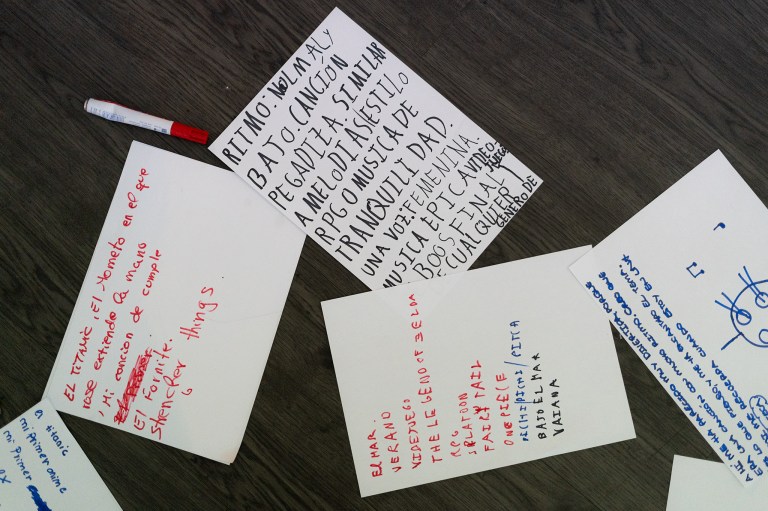 RITMO: NOLMAL Y
BAJO. CANCIÓN
PEGADIZA. SIMILAR
A MELODIAS ESTILO
RPG O MUSICA DE
TRANQUILIDAD.
UNA VOZ: FEMENINA.
MUSICA EPICA VIDEO-
JUEGO
BOOS FINAL
E CUALQUIER
GENERO DE
EL TITANIC. El tometo en el que
rose extiende la mano
, Mi cancion de cumple
El Fornite.
Strencher things
EL MAR.
VERANO
VIDEJUEGO
THE LEGEND OF ZELDA
RPG
SPLATOON
FAIRY TAIL
ONE PIECE
PICHI PICHI / PITCH
BAJO EL MAR
VAIANA
titanic
mi primer anime
mi primer
A MÍ ME HA PARECIDO MUY DIVERTIDA PORQUE
ERA UNA CANCIÓN CON MUCHO RITMO.